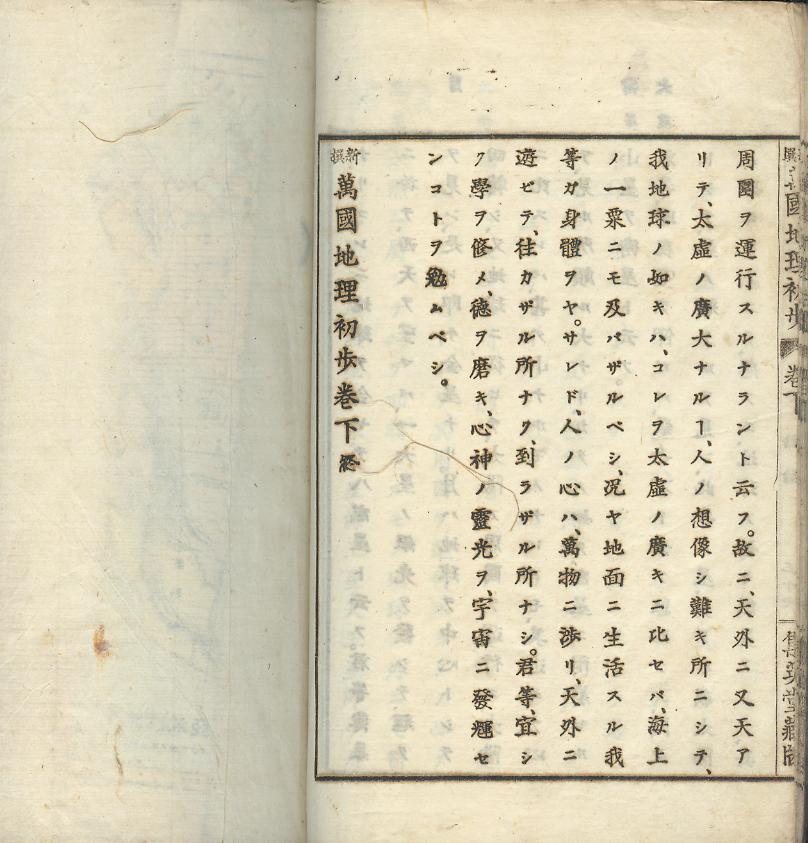 萬國地理初歩 卷下
周圍ヲ運行スルナラント云フ。故ニ、天外ニ又天ア
リテ、太虚ノ廣大ナルヿ、人ノ想像シ難キ所ニシテ、
我地球ノ如キハ、コレヲ太虚ノ廣キニ比セバ、海上
ノ一粟ニモ及バザルベシ、况ヤ地面ニ生活スル我
等ガ身體ヲヤ。サレド、人ノ心ハ、萬物ニ渉リ、天外ニ
遊ビテ、往カザル所ナク、到ラザル所ナシ。君等、宜シ
ク學ヲ修メ、德ヲ磨キ、心神ノ靈光ヲ、宇宙ニ發輝セ
ンコトヲ勉ムベシ。
新撰萬國地理初歩卷下終